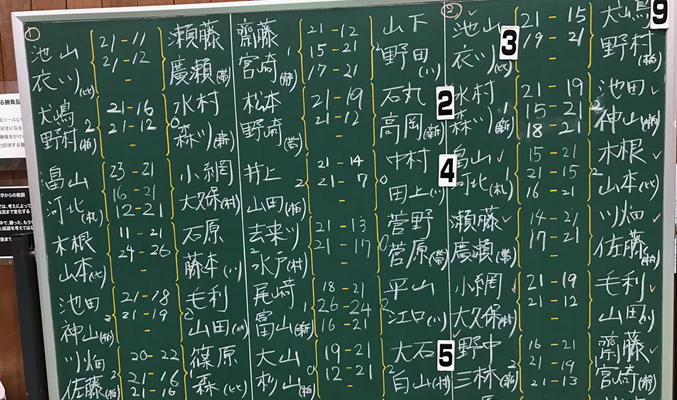 ①
池山 21-11 瀬藤
衣川(七) 21-12 廣瀬(帯)
犬嶋 21-16 水村
野村(柏) 2 21-12 0 森川(新)
畠山 23-21 小網
16-21
河北(札) 12-21 大久保(村)
木根 11-21 石原
山本(七) 24-26 藤本(川)
池田 21-18 毛利
神山(柏) 21-19 山田(川)
川畑 20-22 篠原
21-16
佐藤(柏) 2 21-16 1 森(七)
齋藤 21-12 山下
15-21
宮崎 1 17-21 2 野田(川)
松本 21-19 石丸
野崎(帯) 21-12 高岡(新)
井上 21-14 中村
山田(柏) 2 21-7 0 田上(川)
去来川 21-13 菅野
水戸(村) 2 21-17 0 菅原(帯)
尾崎 18-21 平山
26-24
富山(新) 1 16-21 2 江口(川)
大山 19-21 大石
杉山(柏) 0 12-21 2 白山(村)
②
池山 21-15 犬嶋
衣川(七) 19-21 野村(柏)
水村 21-19 池田
15-21
森川(新) 1 18-21 2 神山(柏)
畠山 15-21 木根
21-15
河北(札) 16-21 2 山本(七)
瀬藤 14-21 川畑
廣瀬(帯) 17-21 佐藤(柏)
小網 21-19 毛利
大久保(村) 21-12 山田(川)
野中 16-21 齋藤
21-19
三林(新) 2 21-13 1 宮崎
3
2
4
5
9